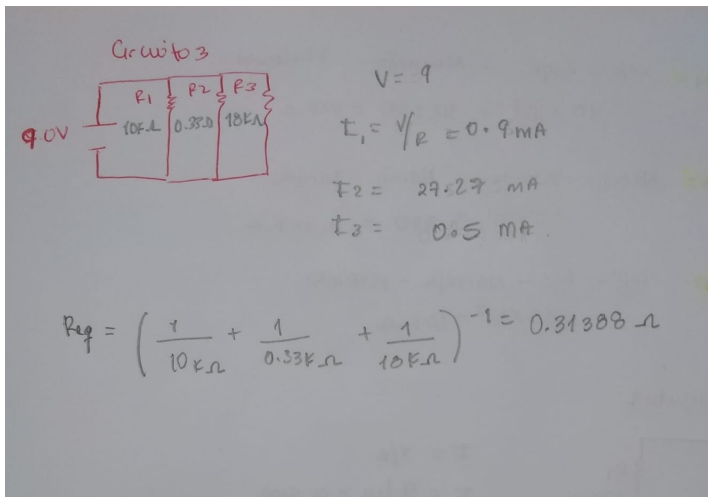 Circuito 3
R1 R2 R3
9.0V 10KΩ 0.33Ω 18KΩ
V = 9
I₁ = V/R = 0.9 mA
I2 = 27.27 mA
I3 = 0.5 mA.
Req = (1/10KΩ + 1/0.33KΩ + 1/18KΩ)⁻¹ = 0.31388 Ω